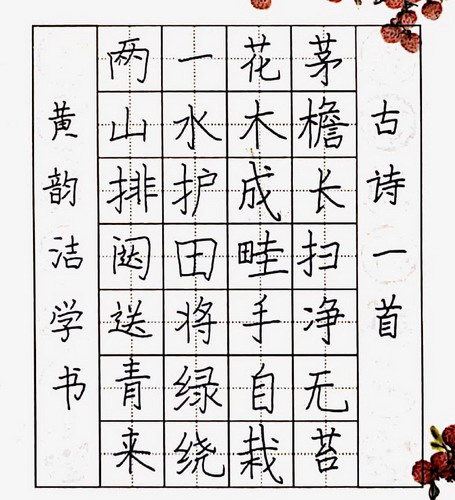 古诗一首
茅檐长扫净无苔
花木成畦手自栽
一水护田将绿绕
两山排闼送青来
黄韵洁学书